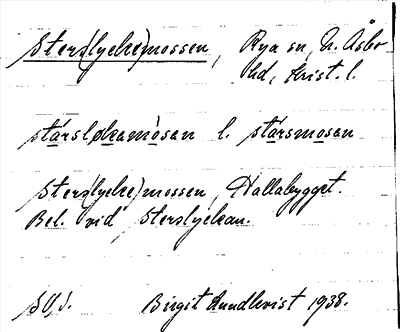 Sters(lycke)mossen, Rya sn, N. Åsbo
hd, Krist. l.
stärsløkamòsan l. stärsmosan
Sters(lycke)mossen, Hallabygget.
Bel. vid Sterslyckan.
Birgit Lundkvist 1938.